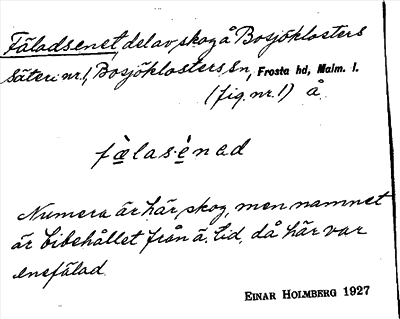 Fäladsenet, del av skog å Bosjöklosters
säteri nr. 1, Bosjöklosters sn, Frosta hd, Malm. l.
(fig. nr. 1) å.
fæ̀lasènad
Numera är här skog, men namnet
är bibehållet från ä. tid, då här var
enefälad.
EINAR HOLMBERG 1927